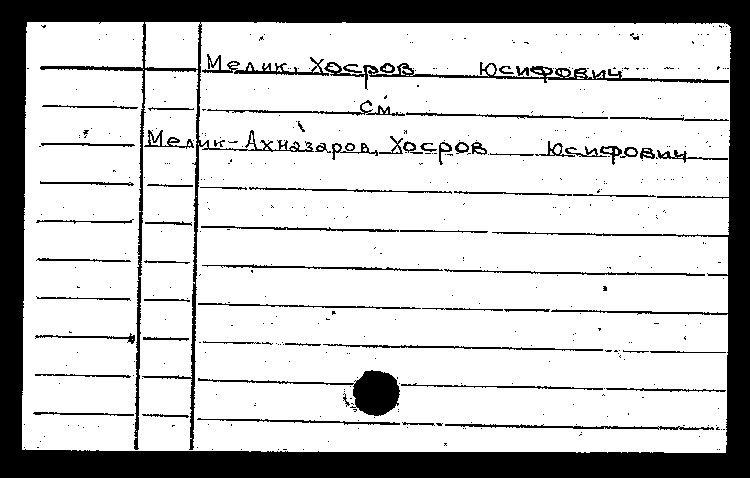 Мелик, Хосров Юсифович
см.
Мелик-Ахназаров, Хосров Юсифович